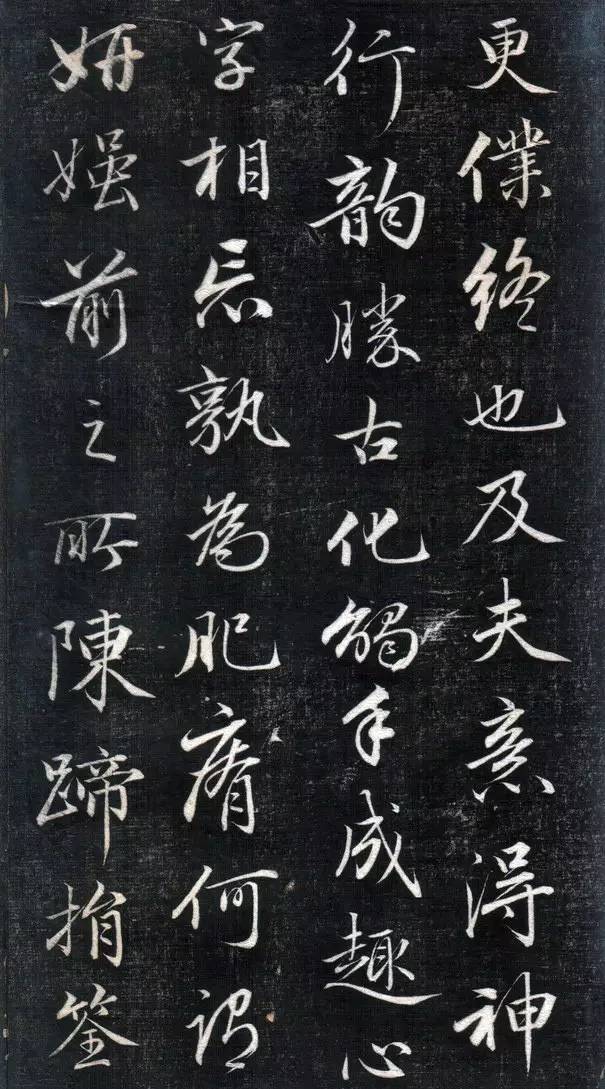 更僕終也及夫意得神
行韻勝古化觸手成趣心
字相忘孰為肥瘠何謂
妍媸前之所陳蹄捐筌